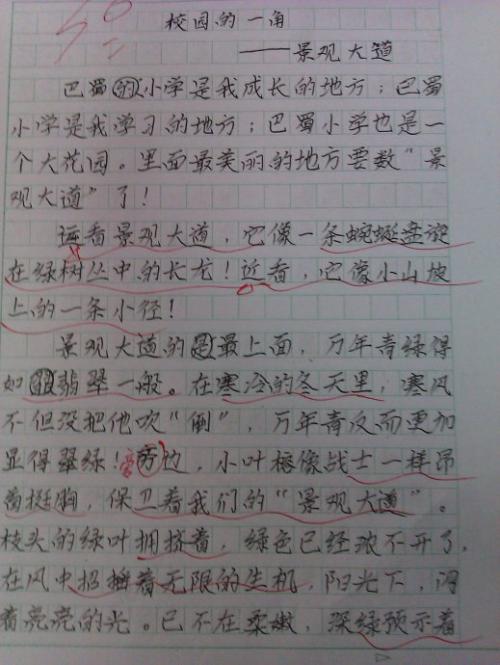 校园的一角
——景观大道
巴蜀的小学是我成长的地方；巴蜀
小学是我学习的地方；巴蜀小学也是一
个大花园。里面最美丽的地方要数“景
观大道”了！
远看景观大道，它像一条蜿蜒盘旋
在绿树丛中的长龙！近看，它像小山坡
上的一条小径！
景观大道的最上面，万年青绿得
如翡翠一般。在寒冷的冬天里，寒风
不但没把他吹“倒”，万年青反而更加
显得翠绿！旁边，小叶榕像战士一样昂
首挺胸，保卫着我们的“景观大道”。
枝头的绿叶拥挤着，绿色已经浓不开了，
在风中招摇着无限的生机，阳光下，闪
着亮亮的光。已不在柔嫩，深绿预示着